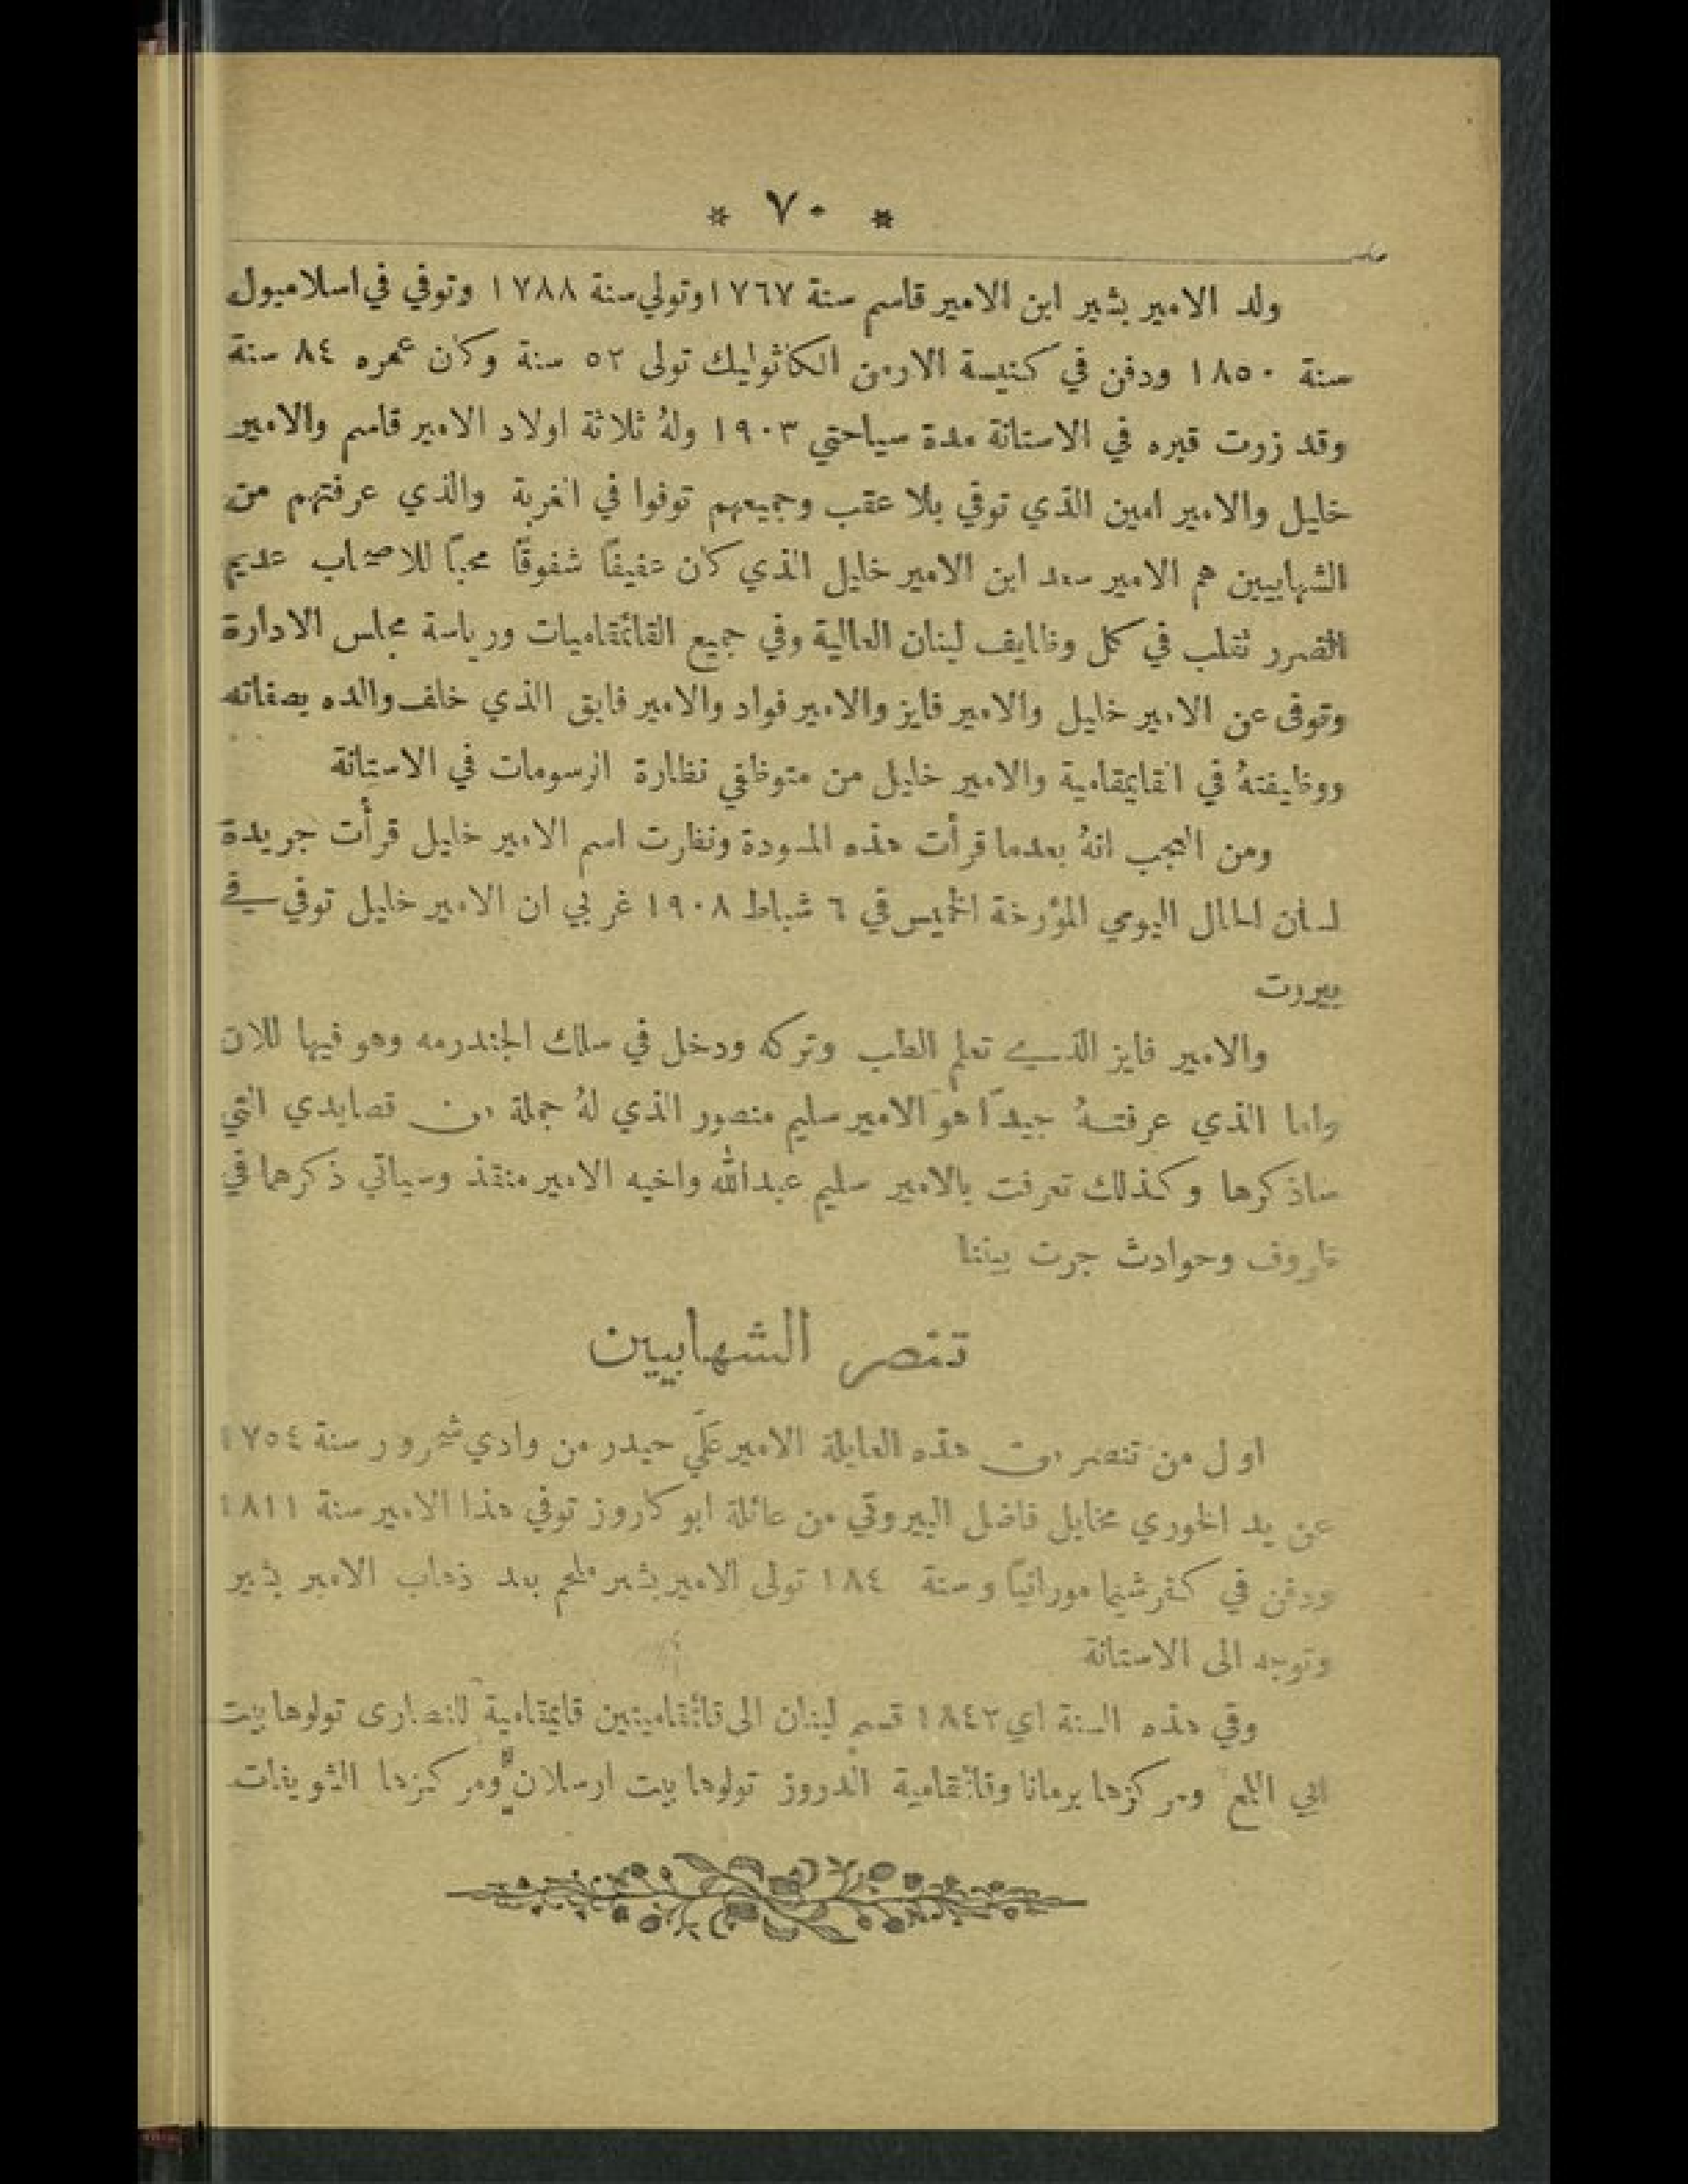 * ٧٠ *
ولد الامير بشير ابن الامير قاسم سنة ١٧٦٧ وتولي سنة ١٧٨٨ وتوفي في اسلامبول
سنة ١٨٥٠ ودفن في كنيسة الارمن الكاثوليك تولى ٥٢ سنة وكان عمره ٨٤ سنة
وقد زرت قبره في الاستانة مدة سياحتي ١٩٠٣ ولهُ ثلاثة اولاد الامير قاسم والامير
خليل والامير امين الذي توفي بلا عقب وجميعهم توفوا في الغربة والذي عرفتهم من
الشهابيين هم الامير سعد ابن الامير خليل الذي كان عفيفًا شفوقًا محبًا للاصحاب عديم
الضرر تقلب في كل وظايف لبنان العالية وفي جميع القائمقاميات ورياسة مجلس الادارة
وتوفى عن الامير خليل والامير فايز والامير فواد والامير فايق الذي خلف والده بصفاته
ووظيفتهُ في القايمقامية والامير خليل من متوظفي نظارة الرسومات في الاستانة
ومن العجب انهُ بعدما قرأت هذه المسودة ونظرت اسم الامير خليل قرأت جريدة
لسان الحال اليومي المؤرخة الخميس في ٦ شباط ١٩٠٨ غربي ان الامير خليل توفي في
بيروت
والامير فايز الذي تعلم الطب وتركه ودخل في سلك الجندرمه وهو فيها للان
واما الذي عرفتهُ جيدًا هو الامير سليم منصور الذي لهُ جملة من قصايدي التي
ساذكرها وكذلك تعرفت بالامير سليم عبدالله واخيه الامير منقذ وسياتي ذكرهما في
ظروف وحوادث جرت بيننا
تنصر الشهابيين
اول من تنصر من هذه العايلة الامير علي حيدر من وادي شحرور سنة ١٧٥٤
عن يد الخوري مخايل فاضل البيروتي من عائلة ابو كاروز توفي هذا الامير سنة ١٨١١
ودفن في كفرشيما مورانيًا وسنة ١٨٤ تولى الامير بشير ملحم بعد ذهاب الامير بشير
وتوجه الى الاستانة
وفي هذه السنة اي ١٨٤٢ قسم لبنان الى قائمقاميتين قايمقامية للنصارى تولوها بيت
ابي اللمع ومركزها برمانا وقائمقامية الدروز تولوها بيت ارسلان ومركزها الشويفات